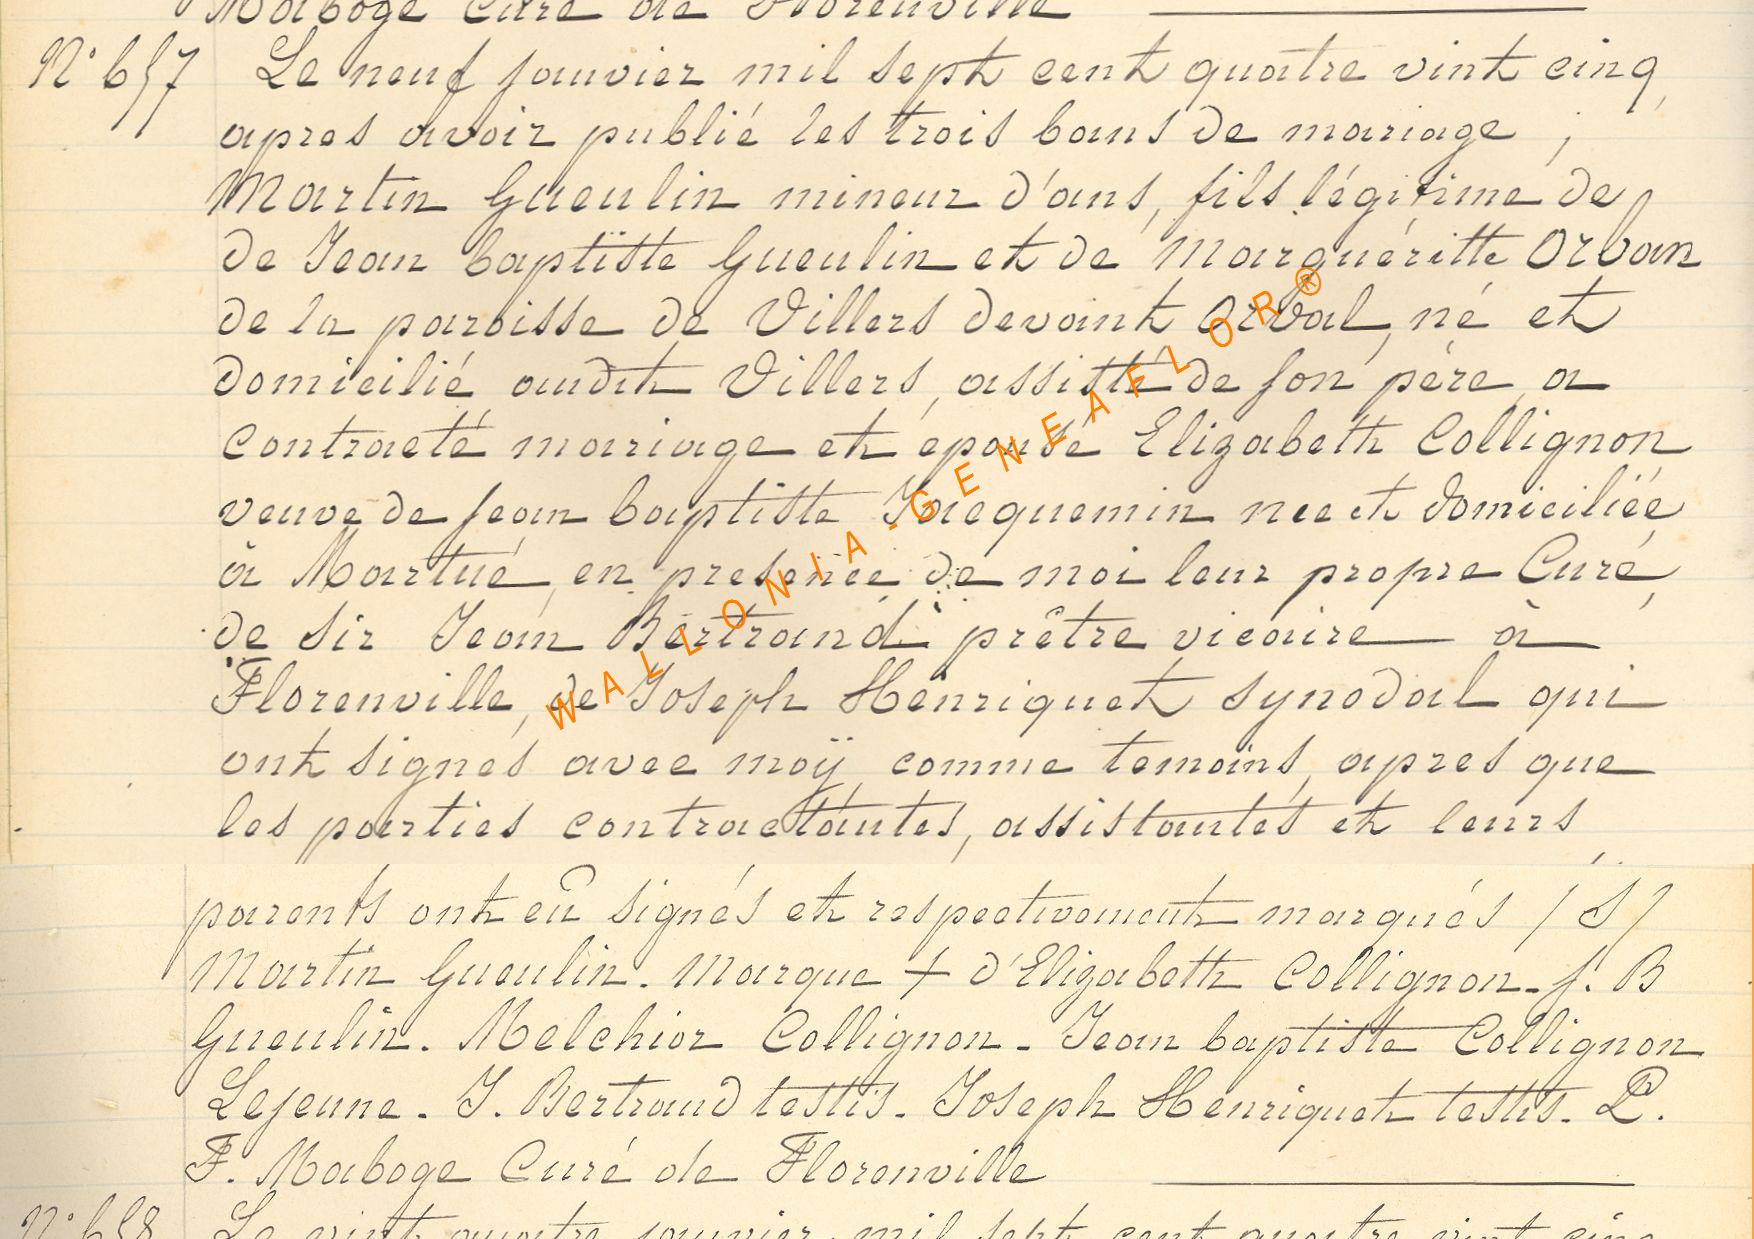 Maboge Curé de Florenville
N° 657 Le neuf janvier mil sept cent quatre vint cinq,
apres avoir publié les trois bans de mariage ;
Martin Gueulin mineur d'ans, fils légitime de
de Jean baptiste Gueulin et de Marguéritte Orban
de la paroisse de Villers devant Orval, né et
domicilié audit Villers, assisté de son père, a
contracté mariage et épousé Elizabeth Collignon
veuve de jean baptiste Jacquemin née et domiciliée
à Martué, en presence de moi leur propre Curé,
de Sir Jean Bertrand prêtre vicaire à
Florenville, de Joseph Henriquet synodal qui
ont signés avec moÿ comme temoins, apres que
les parties contractantes, assistantes et leurs
parents ont eû signés et respectivement marqués /S/
Martin Gueulin. Marque + d'Elizabeth Collignon. j. B
Gueulin. Melchior Collignon - Jean baptiste Collignon
Lejeune - J. Bertrand testis. Joseph Henriquet testis. P.
F. Maboge Curé de Florenville
N° 658 Le vint quatre janvier mil sept cent quatre vint cinq
WALLONIA-GENEAFLOR®